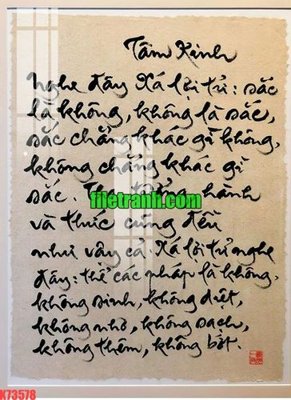 Tâm Kinh
Nghe đây Xá lợi tử: sắc
là không, không là sắc,
sắc chẳng khác gì không,
không chẳng khác gì
sắc. Thọ tưởng hành
filetranh.com
và thức cũng đều
như vậy cả. Xá lợi tử nghe
đây: thể các pháp là không,
không sinh, không diệt,
không nhơ, không sạch,
không thêm, không bớt.
K73578